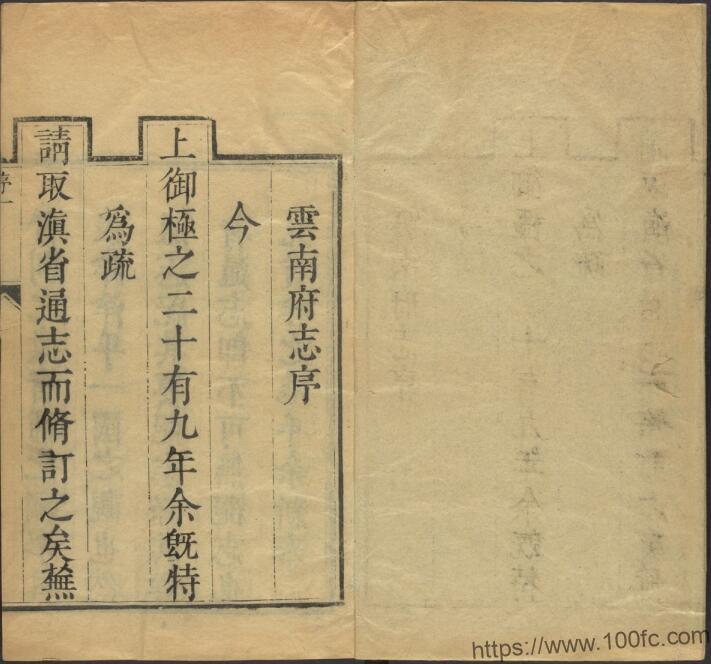 雲南府志序
今
上御極之二十有九年余旣特
爲疏
請取滇省通志而脩訂之矣蕪
序一
https://www.100fc.com